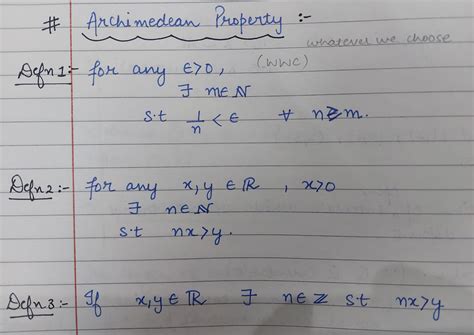 # Archimedean Property :-
whatever we choose
(WWC)
Defn 1:- for any ε>0,
∃ m∈ℕ
s.t 1/n < ε ∀ n≥m.
Defn 2:- for any x,y ∈ ℝ , x>0
∃ n∈ℕ
s.t nx>y.
Defn 3:- If x,y ∈ ℝ ∃ n∈ℤ st nx>y